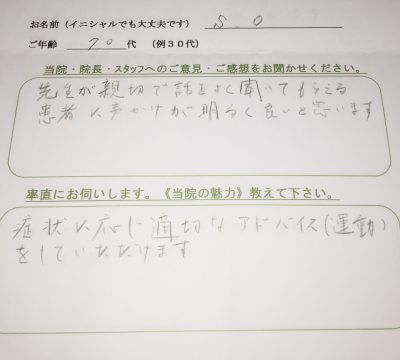 お名前（イニシャルでも大丈夫です） S.O
ご年齢 70 代 （例３０代）
当院・院長・スタッフへのご意見・ご感想をお聞かせください。
先生が親切で話をよく聞いてもらえる
患者に声かけが明るく良いと思います
率直にお伺いします。《当院の魅力》教えて下さい。
症状に応じ適切なアドバイス(運動)
をしていただけます